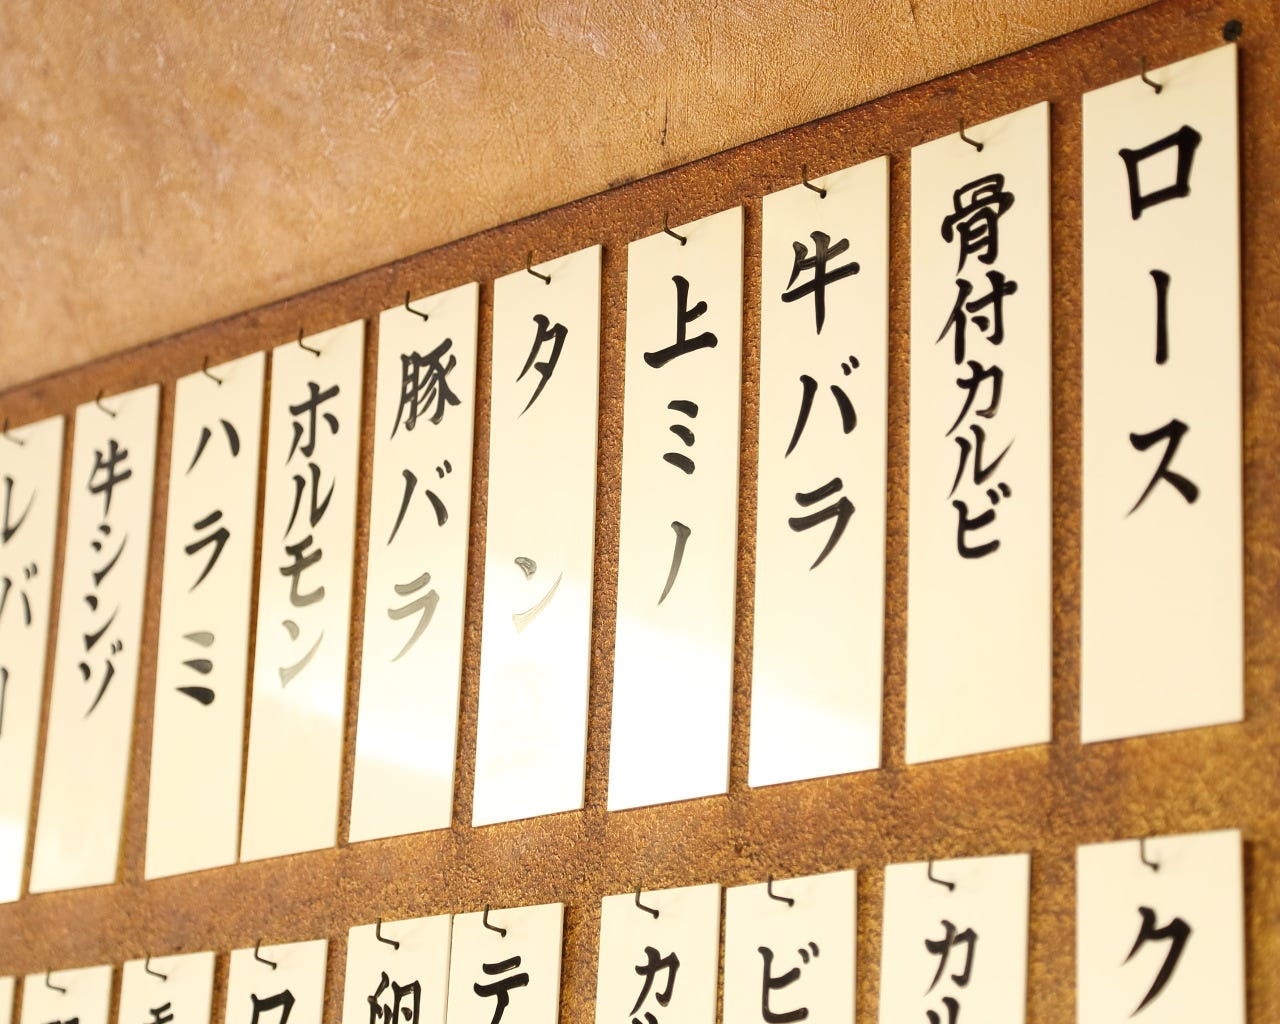 ロース
骨付カルビ
牛バラ
上ミノ
タン
豚バラ
ホルモン
ハラミ
牛シンゾ
レバー
ク
カル
ビ
カル
テ
卵
ワ
モ